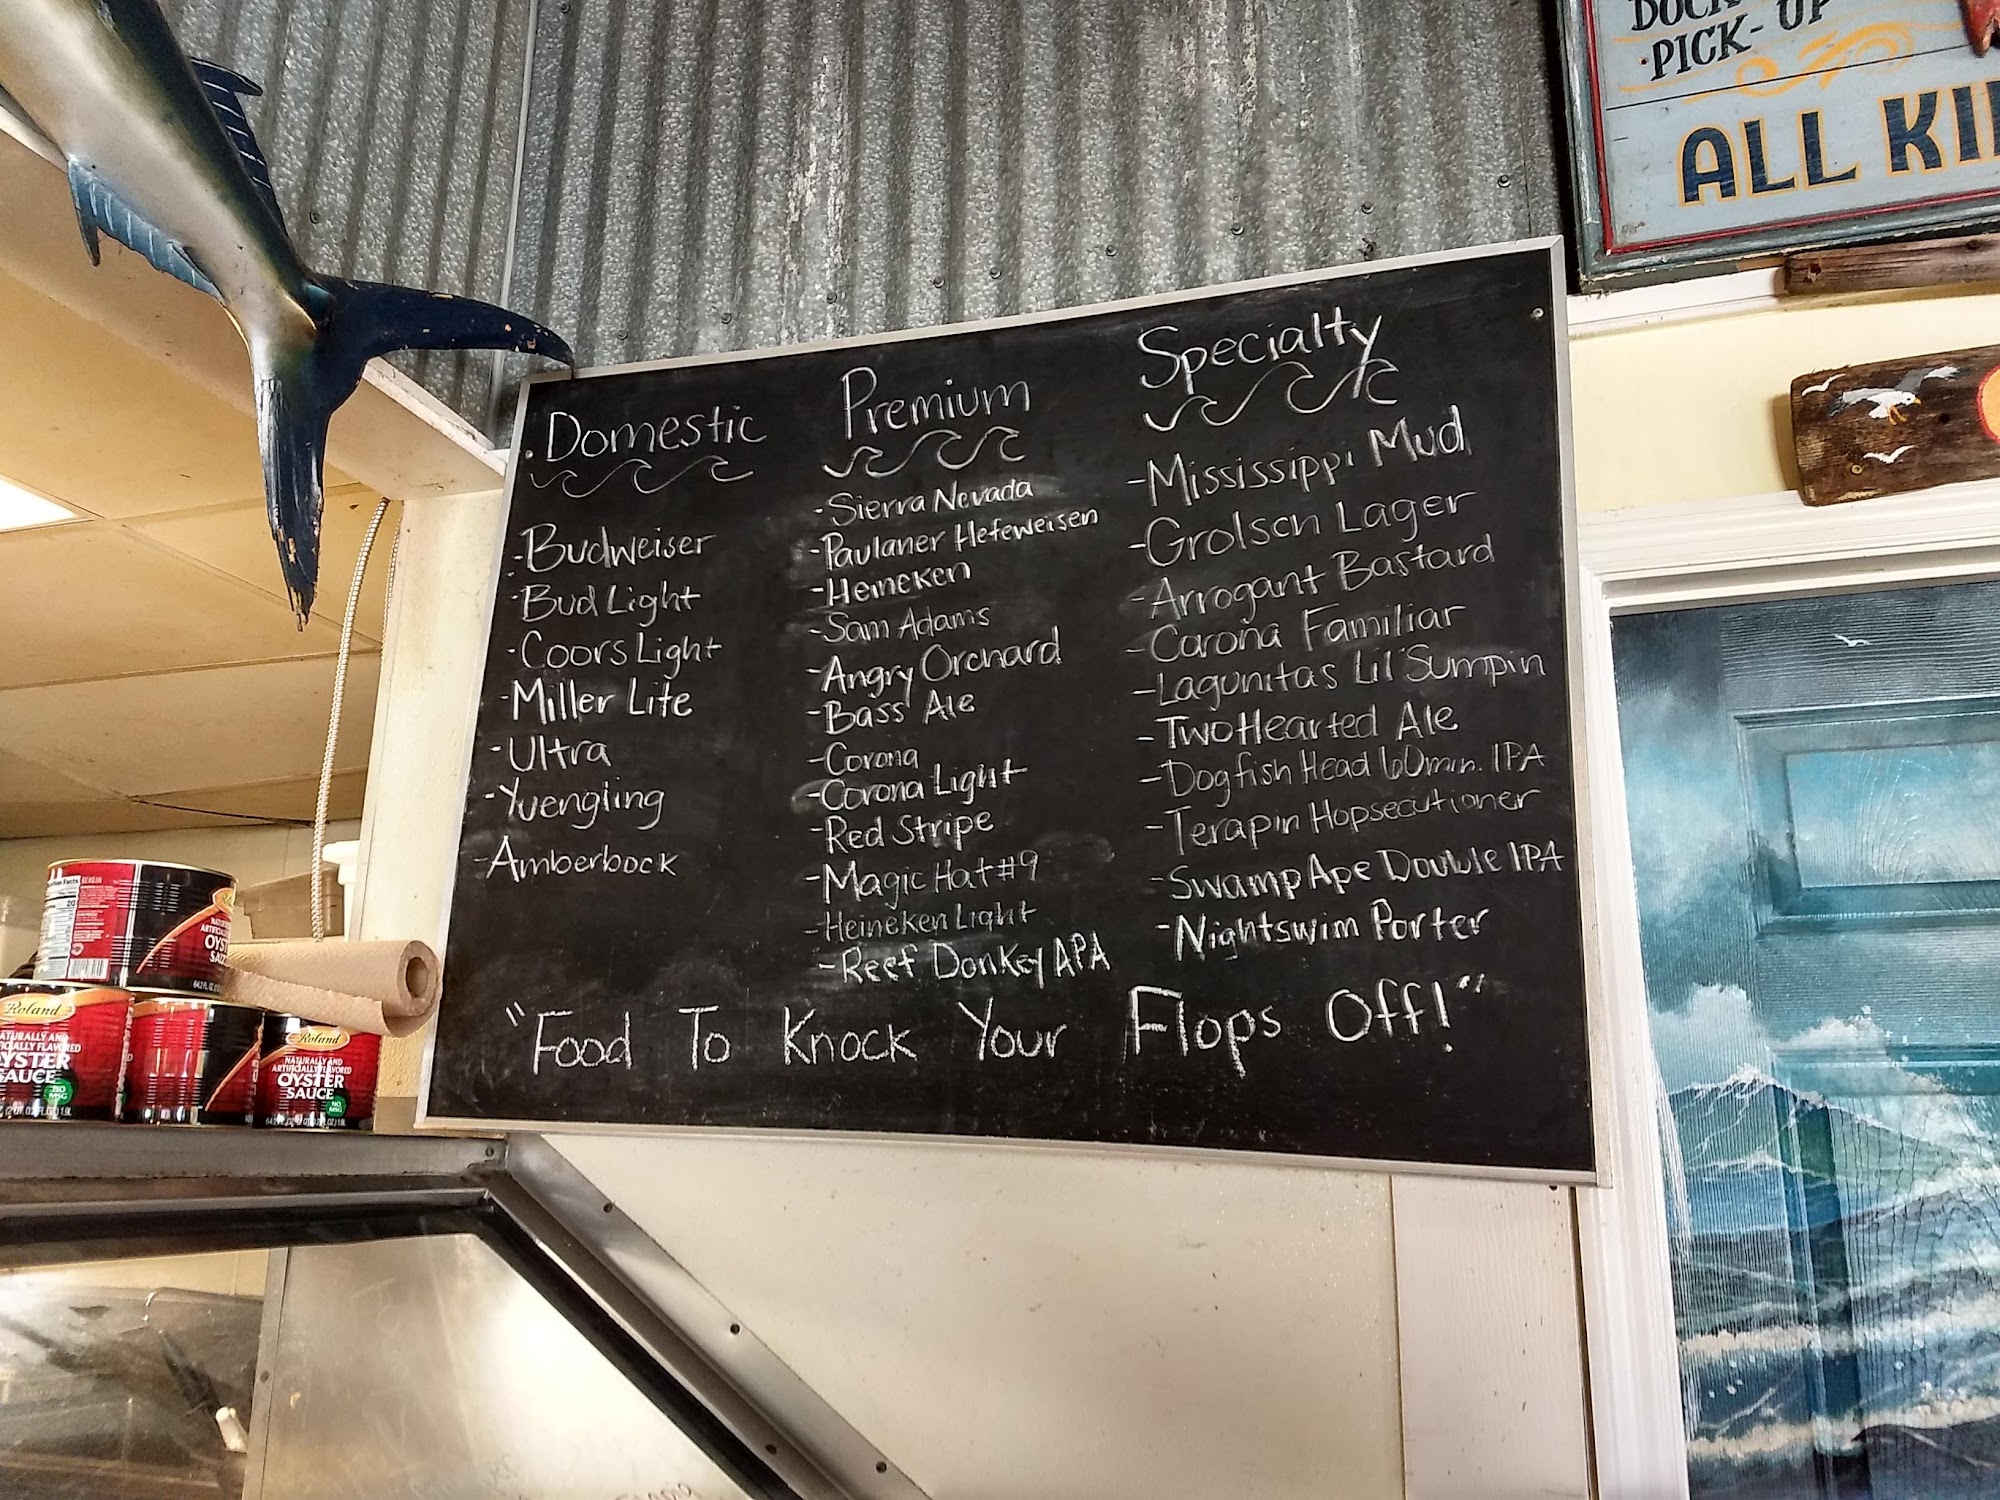 DOCK
·PICK-UP
ALL KI
Domestic
-Budweiser
-Bud Light
-Coors Light
-Miller Lite
-Ultra
-Yuengling
-Amberbock
Premium
-Sierra Nevada
-Paulaner Hefeweisen
-Heineken
-Sam Adams
-Angry Orchard
-Bass Ale
-Corona
-Corona Light
-Red Stripe
-Magic Hat #9
-Heineken Light
-Reef Donkey APA
Specialty
-Mississippi Mud
-Grolsch Lager
-Arrogant Bastard
-Corona Familiar
-Lagunitas Lil' Sumpin
-Two Hearted Ale
-Dogfish Head 60 min. IPA
-Terapin Hopsecutioner
-Swamp Ape Double IPA
-Nightswim Porter
"Food To Knock Your Flops Off!"
OYST
Roland
NATURALLY AND
ARTIFICIALLY FLAVORED
OYSTER
SAUCE
NO
MSG
Roland
NATURALLY AND
ARTIFICIALLY FLAVORED
OYSTER
SAUCE
NO
MSG